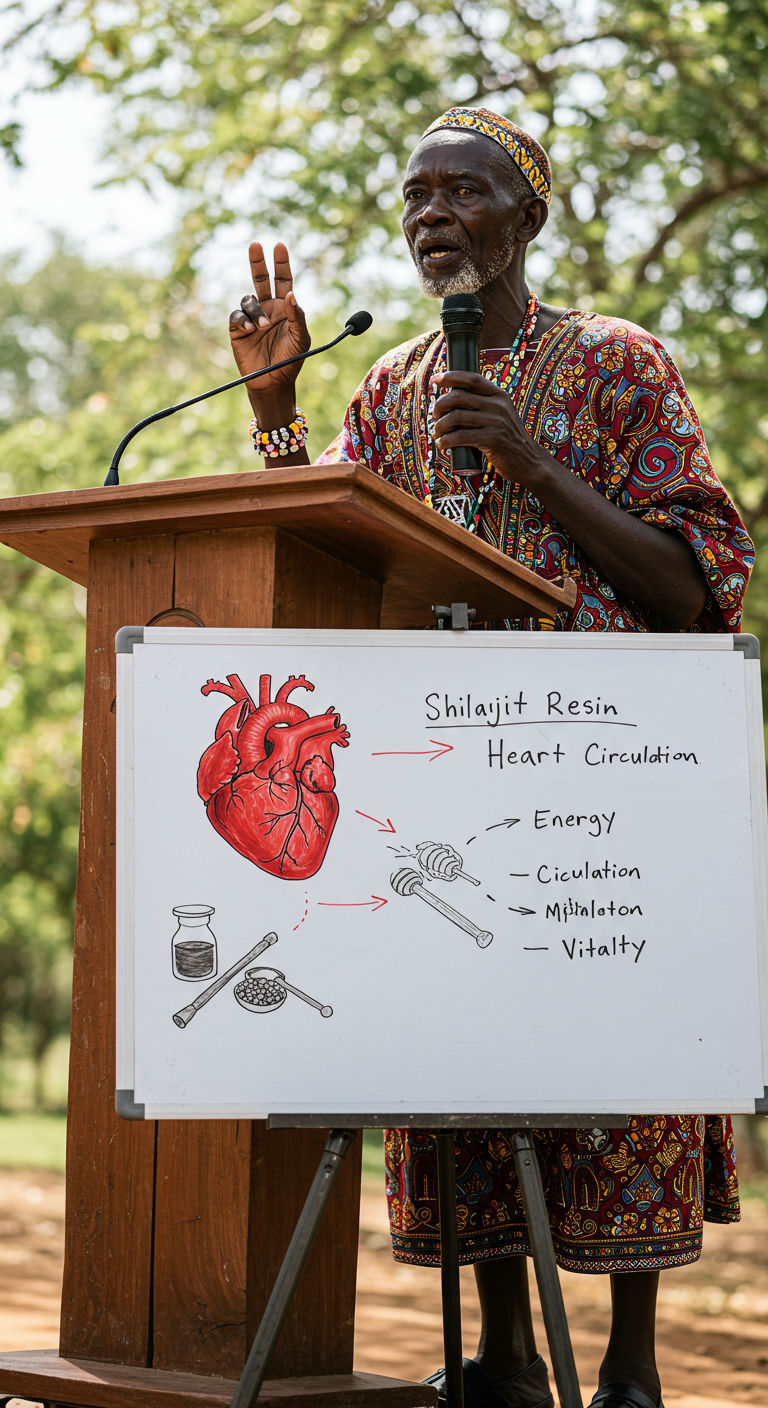 Shilajit Resin
Heart Circulation
Energy
Ciculation
Vitalty